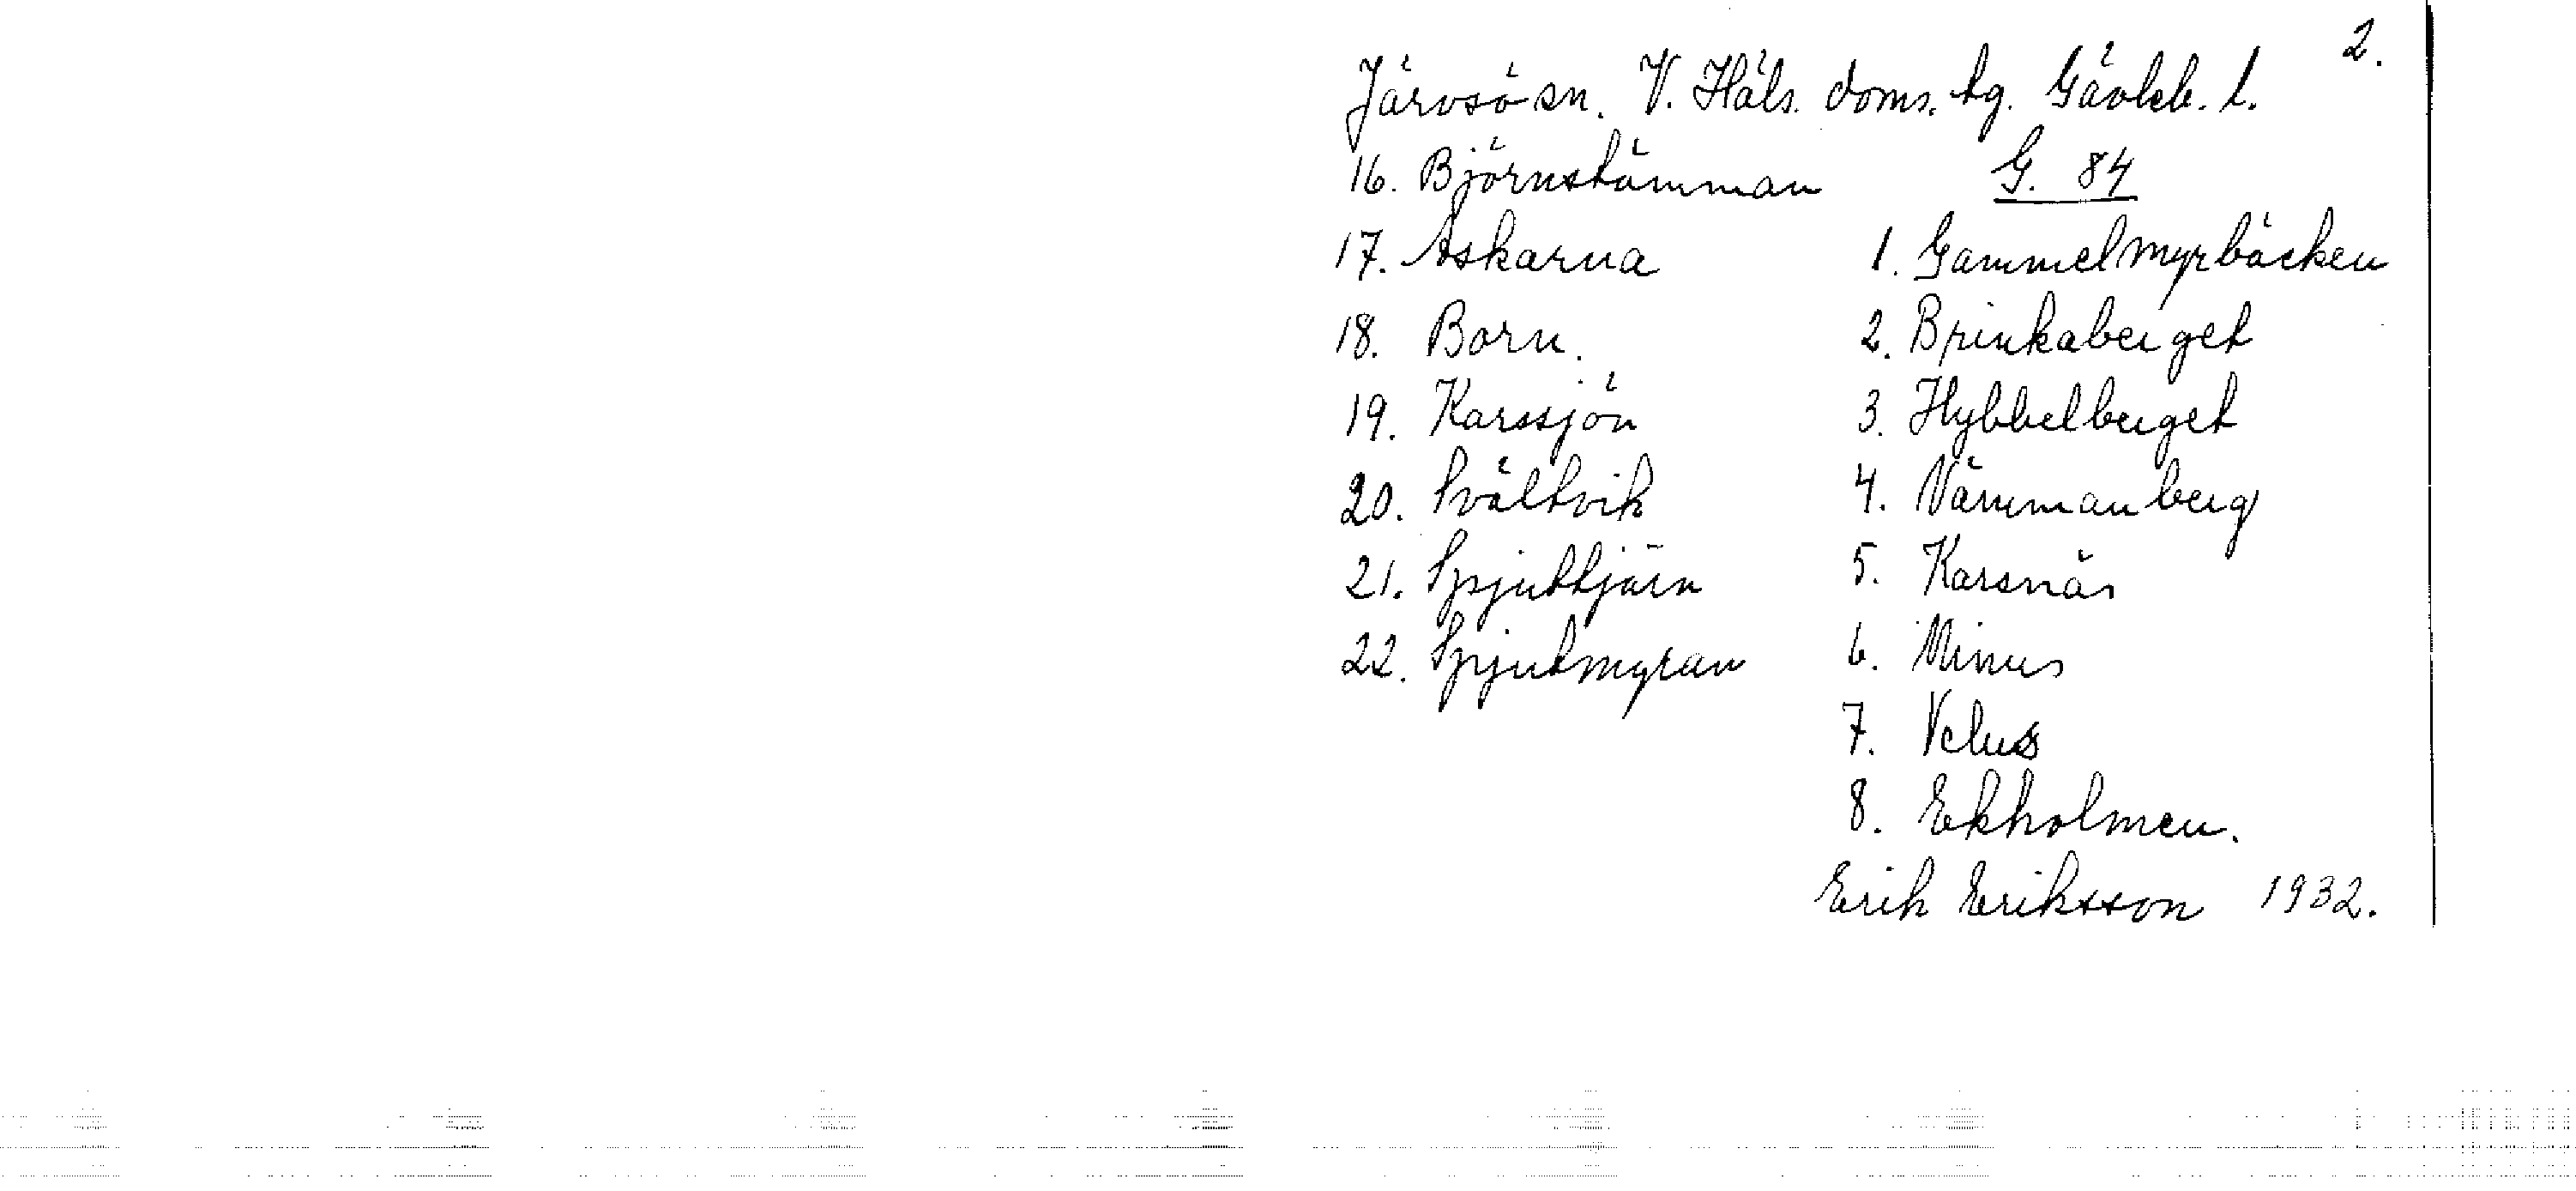 2.
Järvsö sn. V. Häls. doms. tg. Gävleb. l.
16. Björnstämman
17. Askarna
18. Born.
19. Karssjön
20. Svältvik
21. Spjuttjärn
22. Spjutmyran
G. 84
1. Gammelmyrbäcken
2. Brinkaberget
3. Hybbelberget
4. Vämmanberg
5. Karsnäs
6. Minus
7. Velus
8. Ekholmen.
Erik Eriksson 1932.